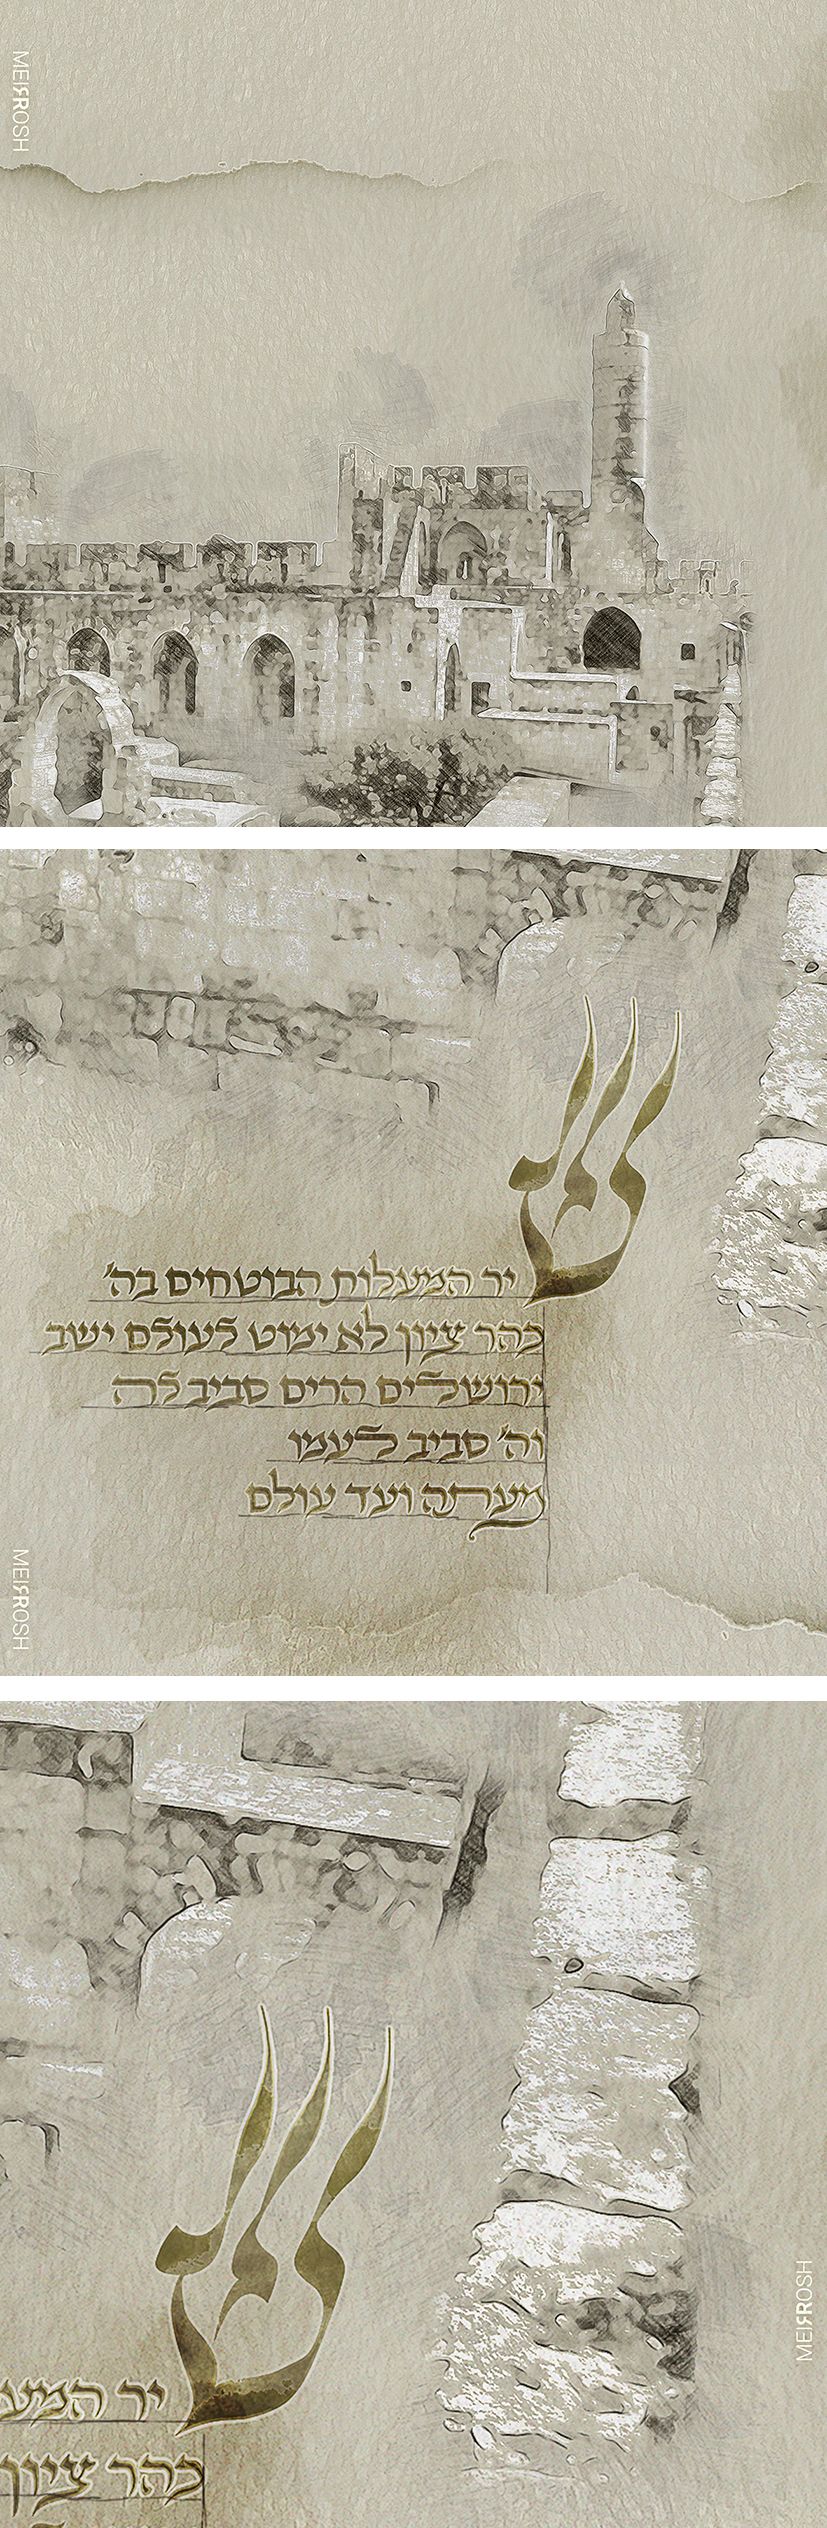 MEIRROSH
שיר המעלות הבוטחים בה'
כהר ציון לא ימוט לעולם ישב
ירושלים הרים סביב לה
וה' סביב לעמו
מעתה ועד עולם
MEIRROSH
MEIRROSH
שיר המע
כהר ציון